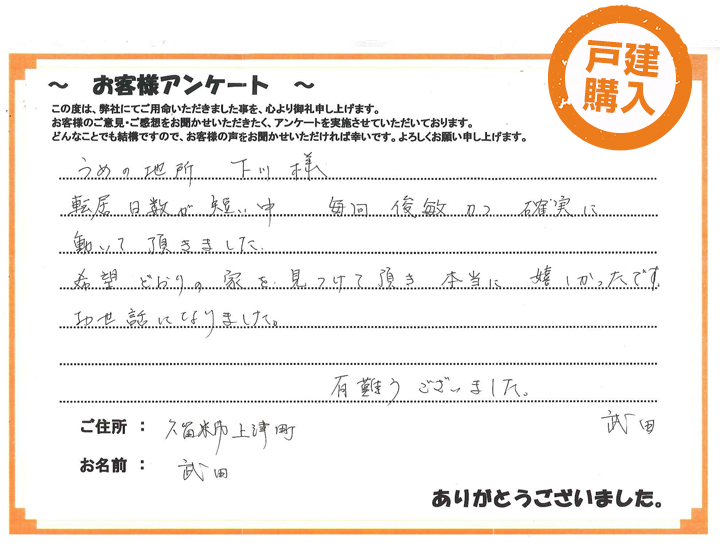 戸建
購入
～ お客様アンケート ～
この度は、弊社にてご用命いただきました事を、心より御礼申し上げます。
お客様のご意見・ご感想をお聞かせいただきたく、アンケートを実施させていただいております。
どんなことでも結構ですので、お客様の声をお聞かせいただければ幸いです。よろしくお願い申し上げます。
うめの地所 下川様
転居日数が短い中 毎回 俊敏かつ 確実に
動いて頂きました。
希望どおりの家を見つけて頂き 本当に 嬉しかったです
お世話になりました。
有難うございました。
武田
ご住所 ： 久留米市上津町
お名前 ： 武田
ありがとうございました。